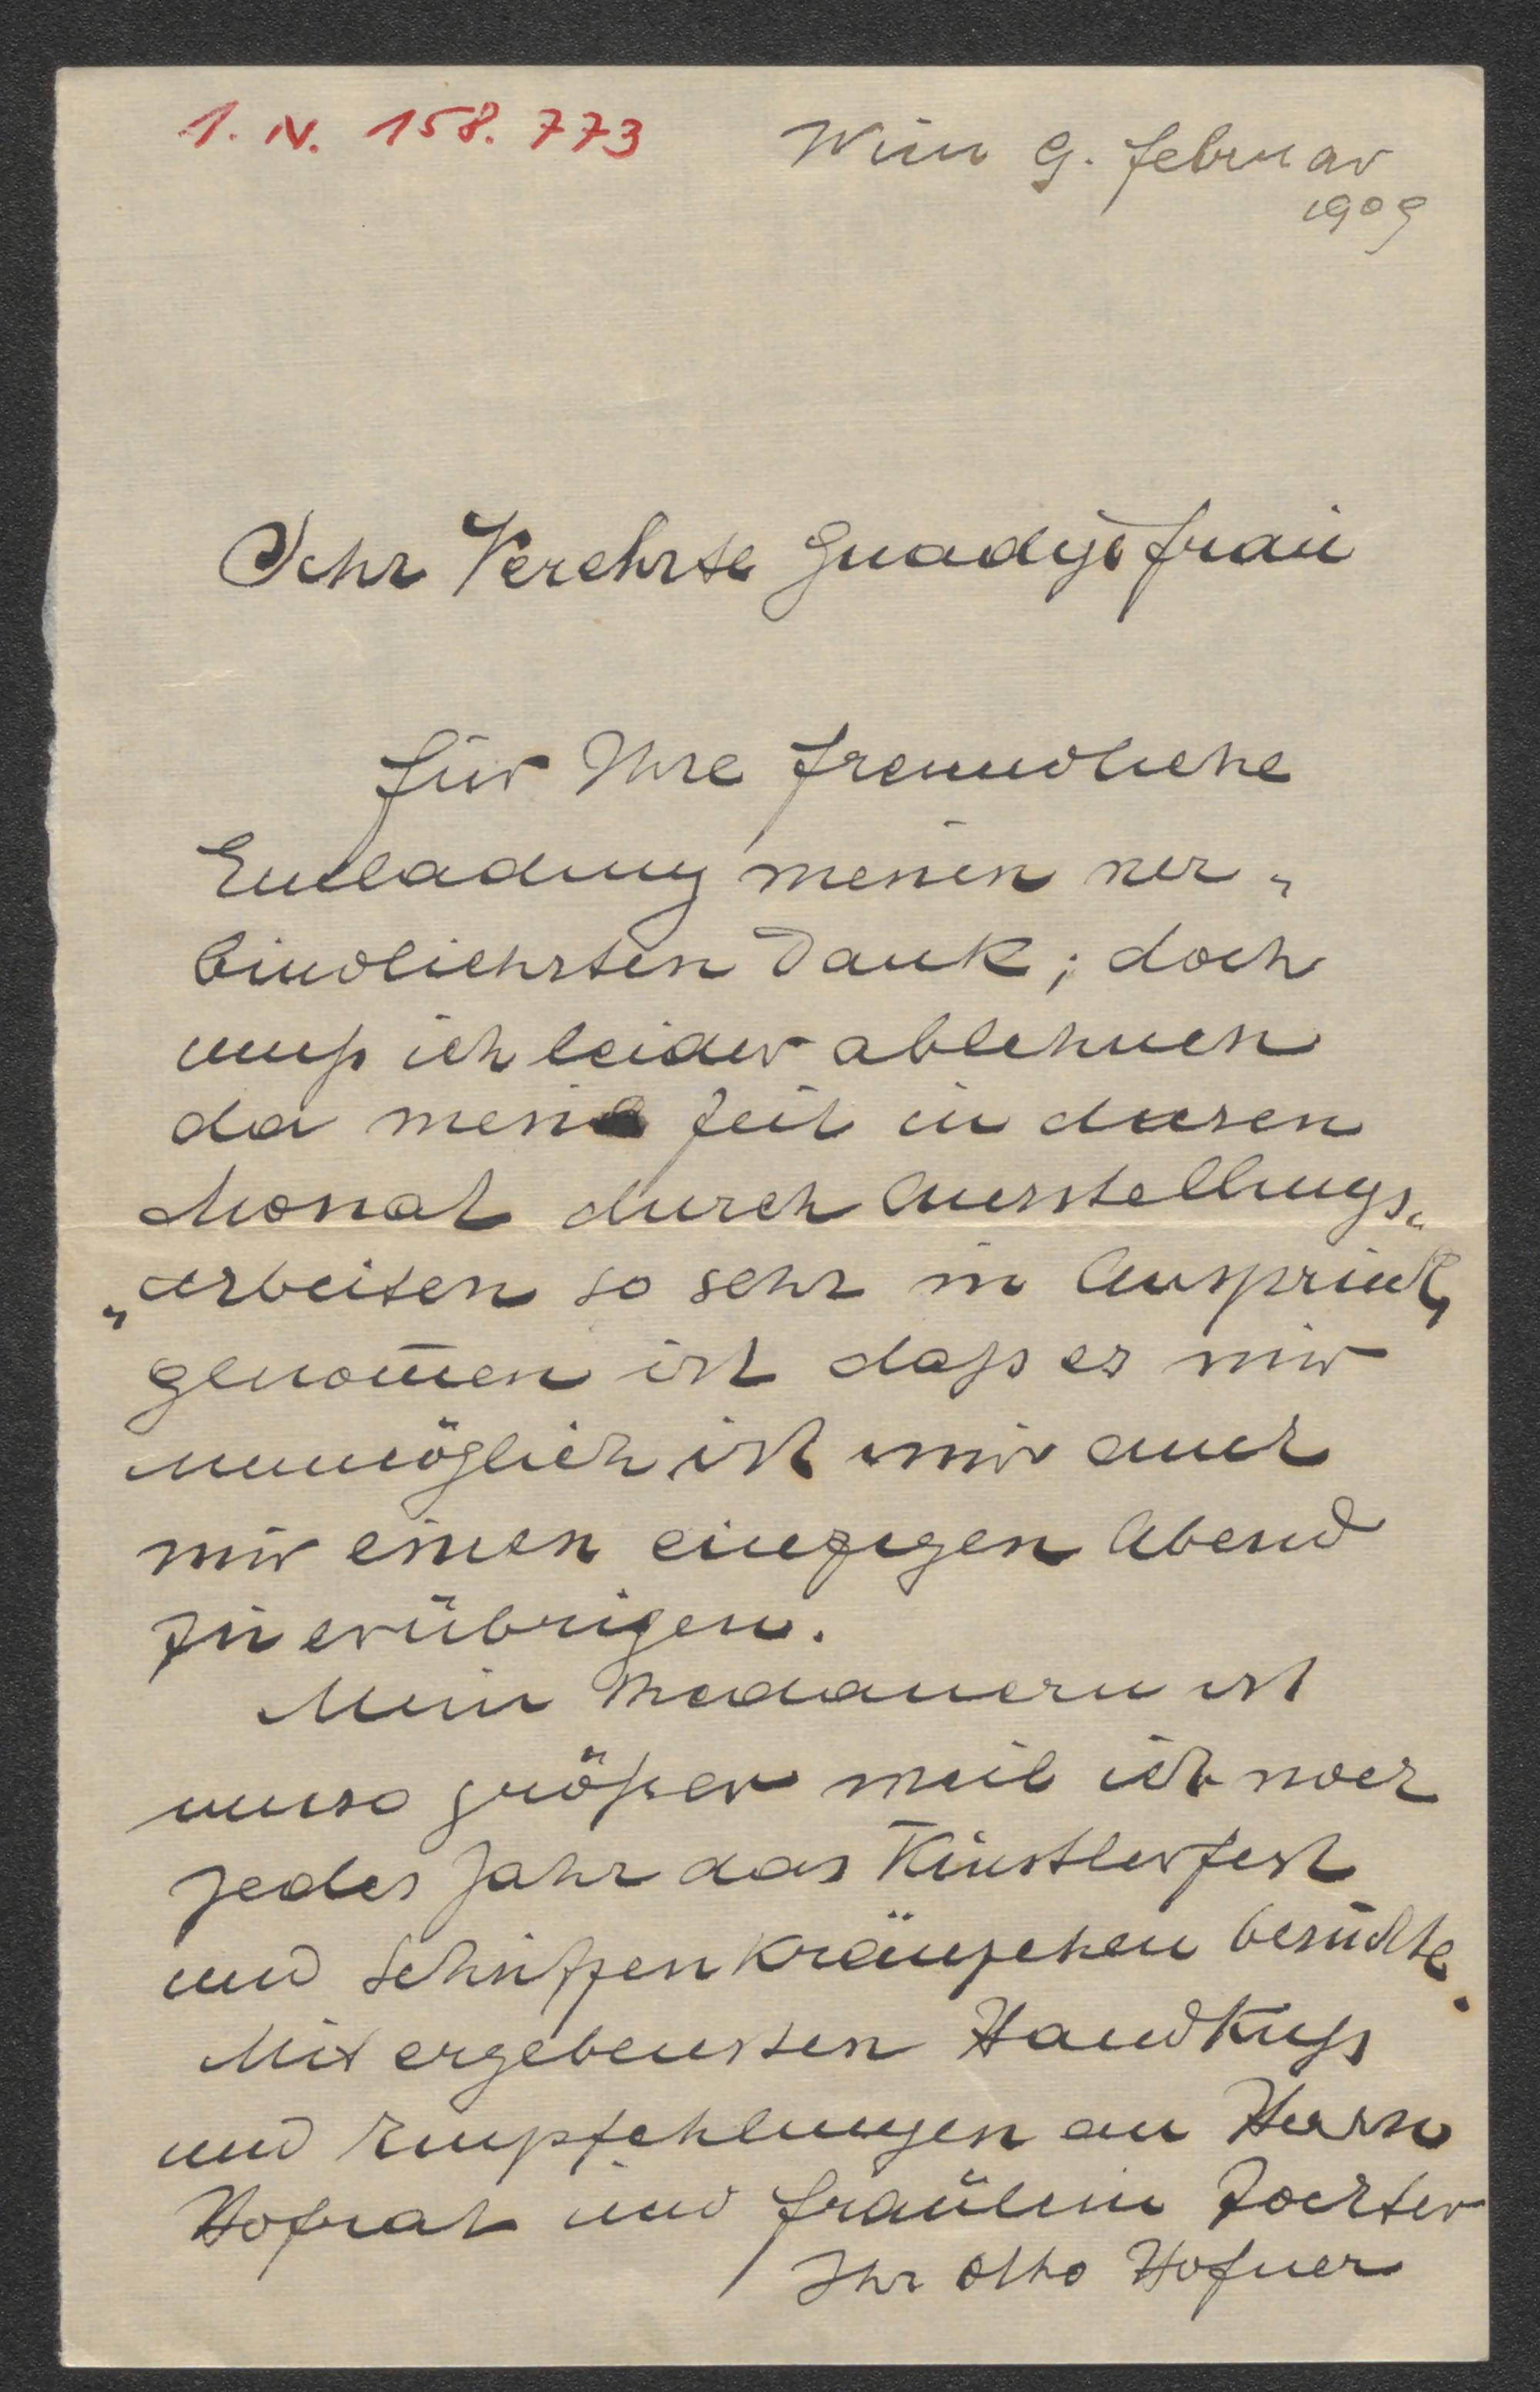 I. N. 158.773
Wien 9. Februar
1909
Sehr Verehrte Gnädige Frau
für Ihre freundliche
Einladung meinen ver-
bindlichsten Dank; doch
muß ich leider ablehnen
da meine Zeit in diesen
Monat durch Ausstellungs-
arbeiten so sehr in Anspruch
genom̄en ist daß es mir
unmöglich ist mir auch
nur einen einzigen Abend
zu erübrigen.
Mein Bedauern ist
umso größer weil ich noch
jedes Jahr das Künstlerfest
und Schützenkränzchen besuchte.
Mit ergebensten Handkuß
und Empfehlungen an Herrn
Hofrat und Fräulein Tochter
Ihr Otto Hofner